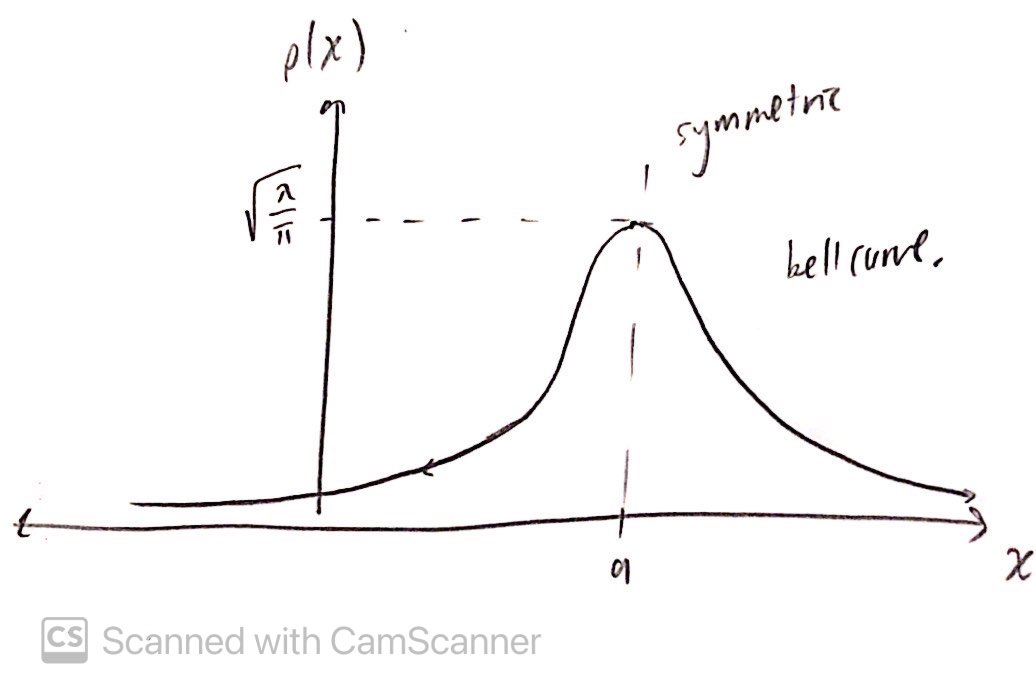 ρ(x)
symmetric
√(λ/π)
bell curve.
a
x
CS Scanned with CamScanner